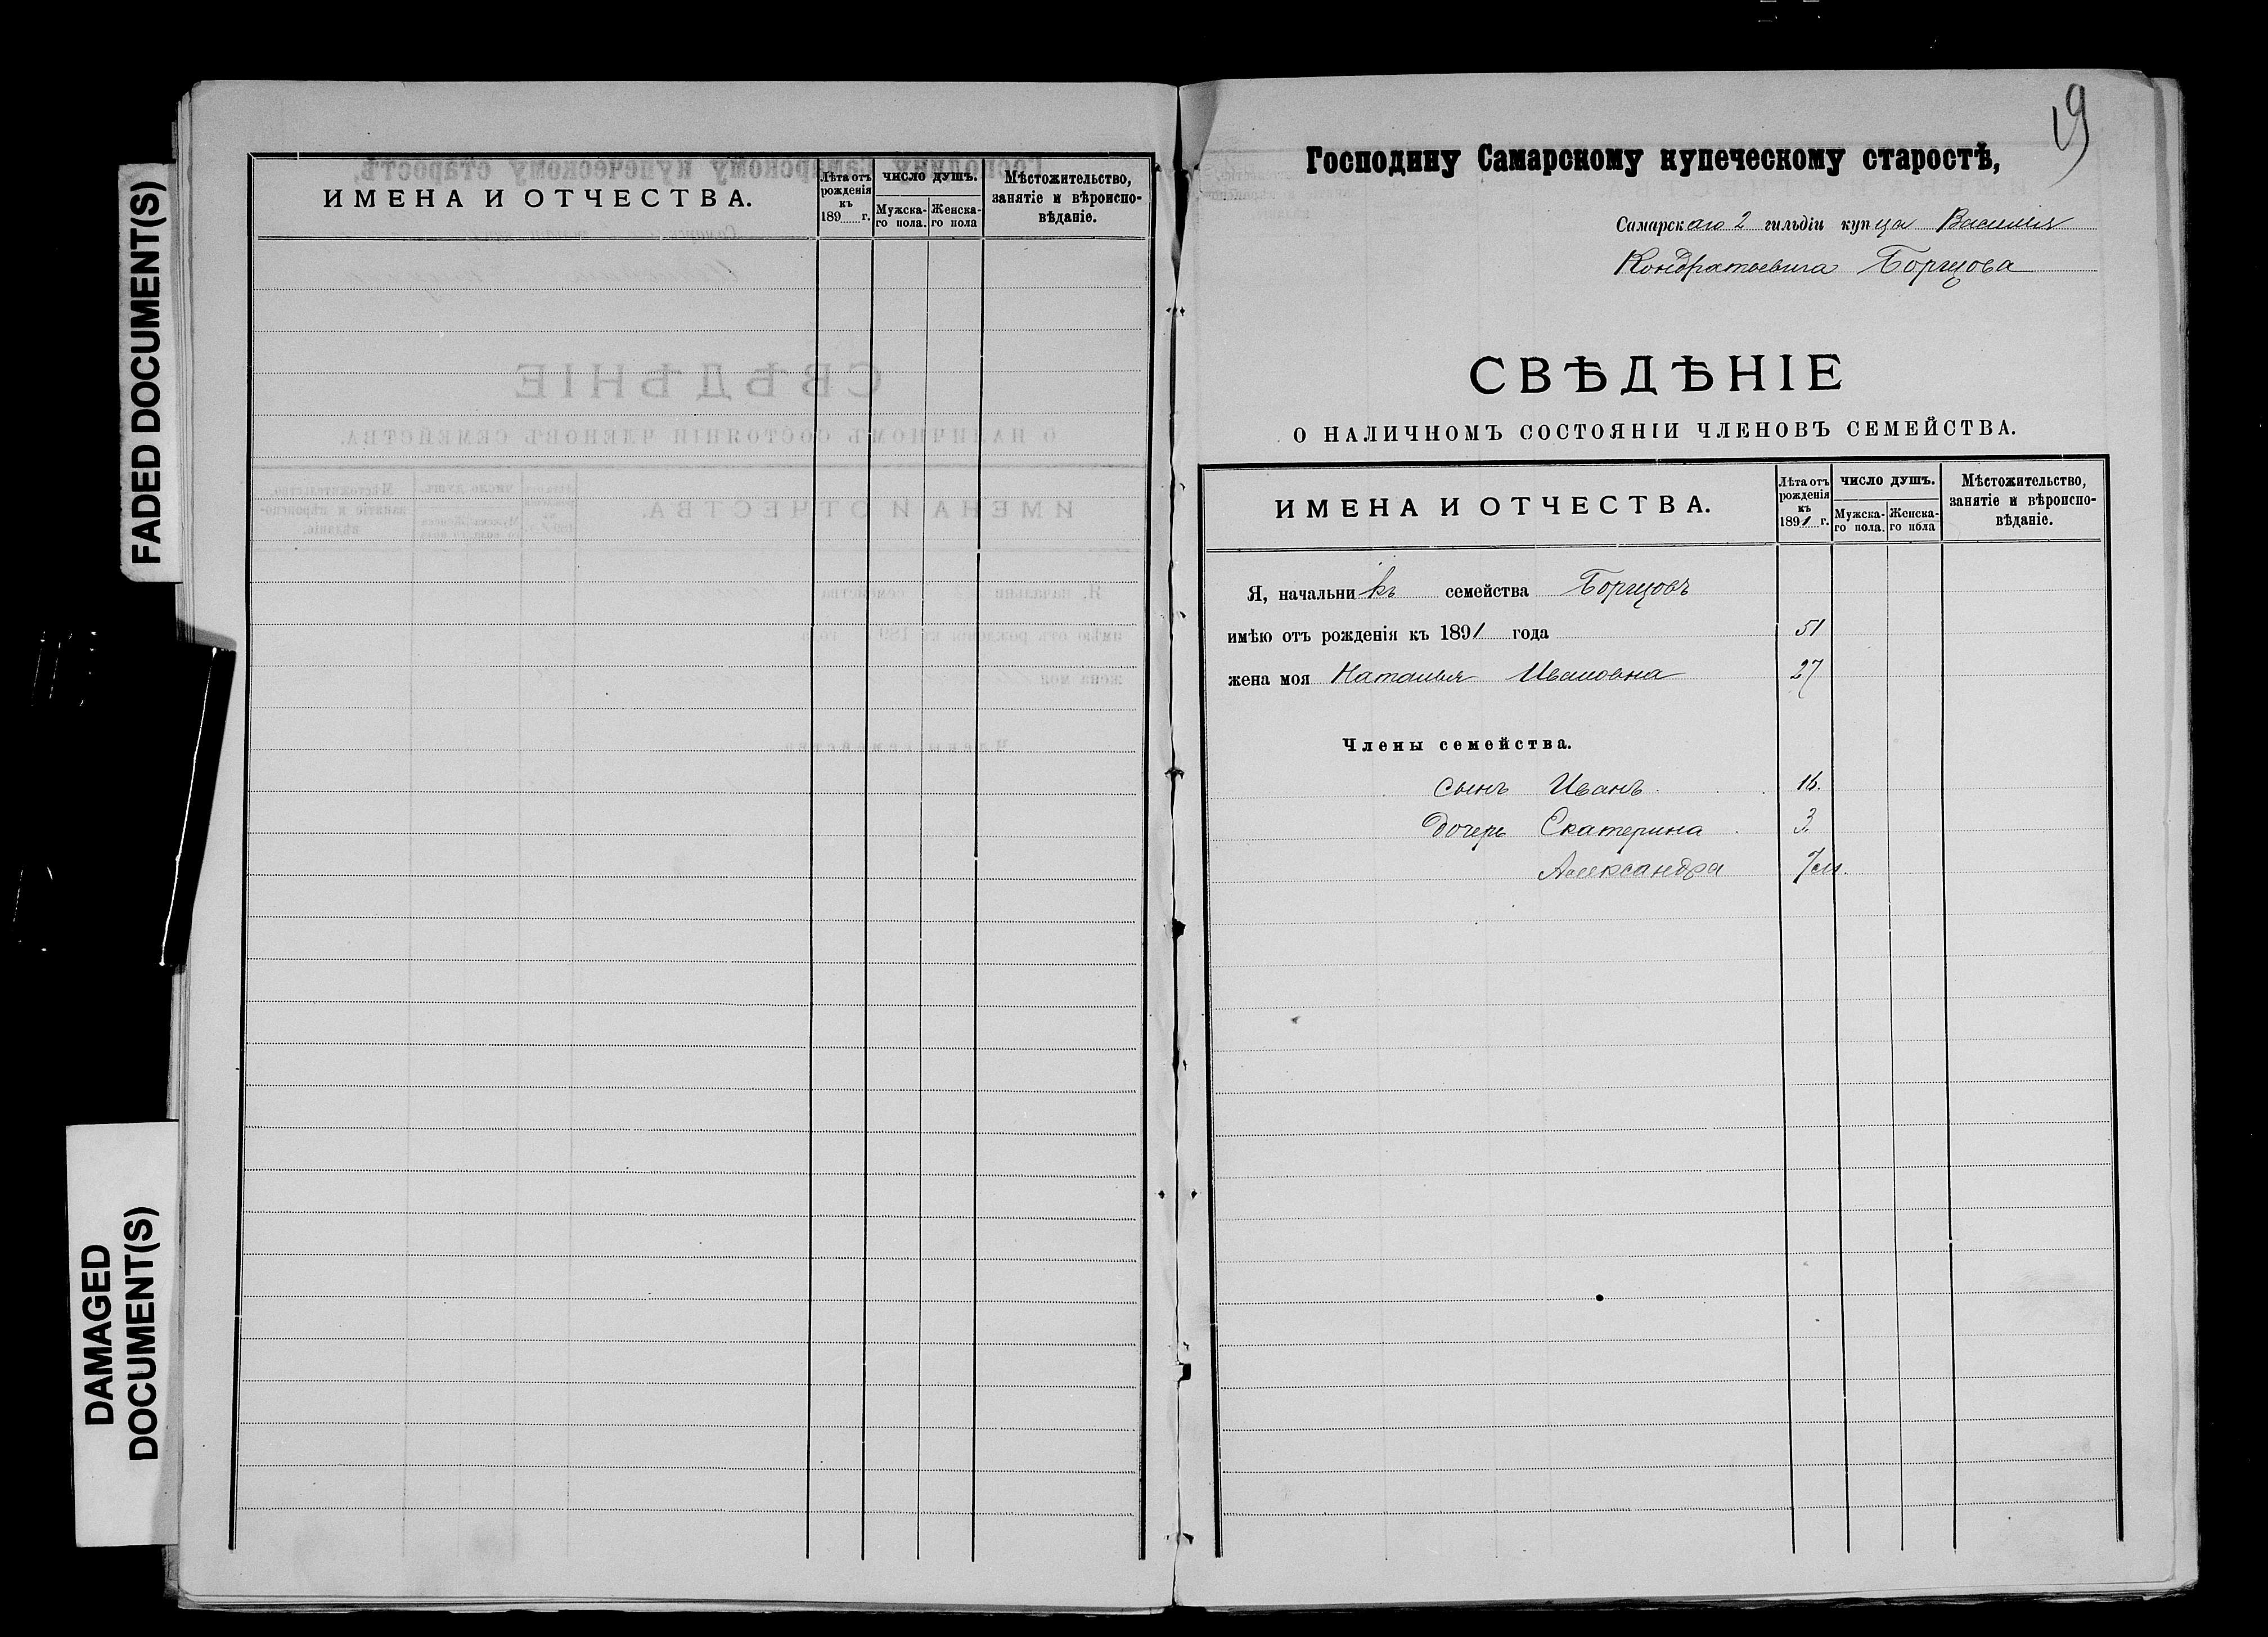 FADED DOCUMENT(S)
DAMAGED
DOCUMENT(S)
ИМЕНА И ОТЧЕСТВА.
Лѣта отъ
рожденія
къ
189 г.
ЧИСЛО ДУШЪ.
Мужска-
го пола.
Женска-
го пола
Мѣстожительство,
занятіе и вѣроиспо-
вѣданіе.
19
Господину Самарскому купеческому старостѣ,
Самарскаго 2 гильдіи купца Василія
Кондратьевича Борщова
СВѢДѢНІЕ
О НАЛИЧНОМЪ СОСТОЯНІИ ЧЛЕНОВЪ СЕМЕЙСТВА.
ИМЕНА И ОТЧЕСТВА.
Лѣта отъ
рожденія
къ
1891 г.
ЧИСЛО ДУШЪ.
Мужска-
го пола.
Женска-
го пола
Мѣстожительство,
занятіе и вѣроиспо-
вѣданіе.
Я, начальникъ семейства Борщовъ
имѣю отъ рожденія къ 1891 года 51
жена моя Наталья Ивановна 27
Члены семейства.
сынъ Иванъ 16.
Дочерь Екатерина 3.
Александра 7 м.